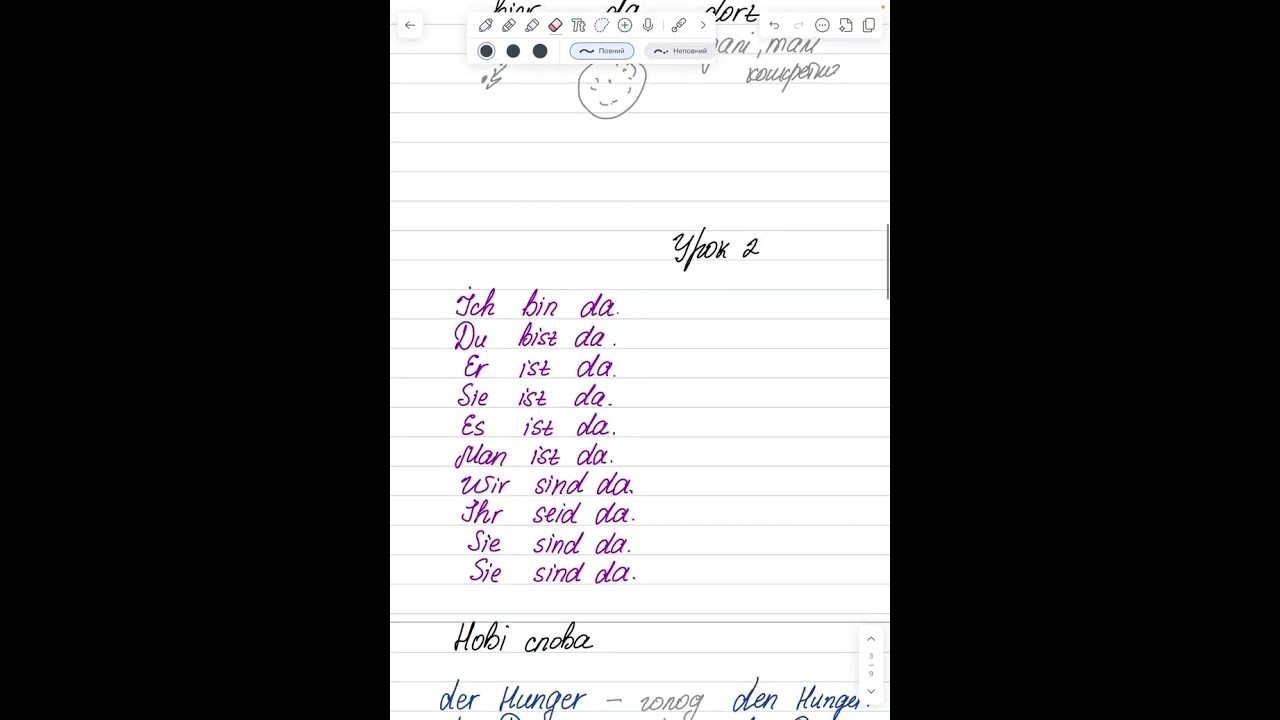 hier da dort
Повний Неповний
там
конкретно
Урок 2
Ich bin da.
Du bist da.
Er ist da.
Sie ist da.
Es ist da.
Man ist da.
Wir sind da.
Ihr seid da.
Sie sind da.
Sie sind da.
Нові слова
3
9
der Hunger – голод den Hunger.